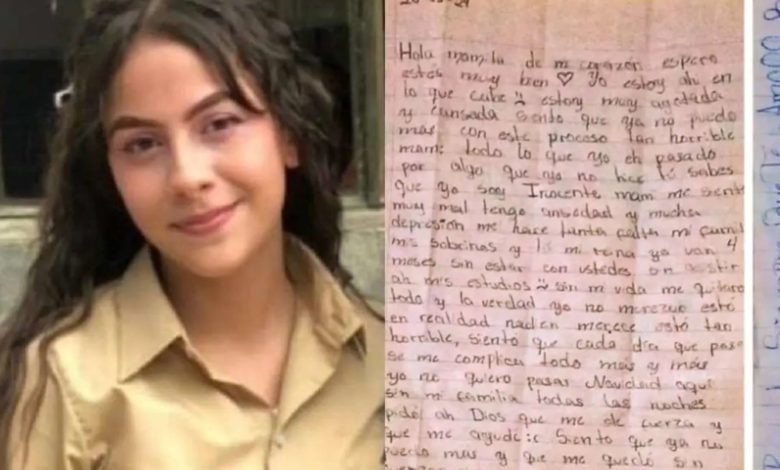 Hola mamita de mi corazón espero
estés muy bien ♡ Yo estoy ahí en
lo que cabe estoy muy agotada
y cansada siento que ya no puedo
más con este proceso tan horrible
mami todo lo que yo eh pasado
por algo que yo no hice tú sabes
que yo soy Inocente mami me siento
muy mal tengo ansiedad y mucha
depresión me hace tanta falta mi famil
mis sobrinas y mi ya van 4
meses sin estar con ustedes sin asistir
ah mis estudios sin mi vida me quitaro
todo y la verdad yo no merezco esto
en realidad nadien merece esto tan
horrible, siento que cada día que pasa
se me complica todo más y más
yo no quiero pasar Navidad aquí
sin mi familia todas las noches
pido ah Dios que me de fuerza y
que me ayude :c Siento que ya no
puedo mas y que me quedo sin